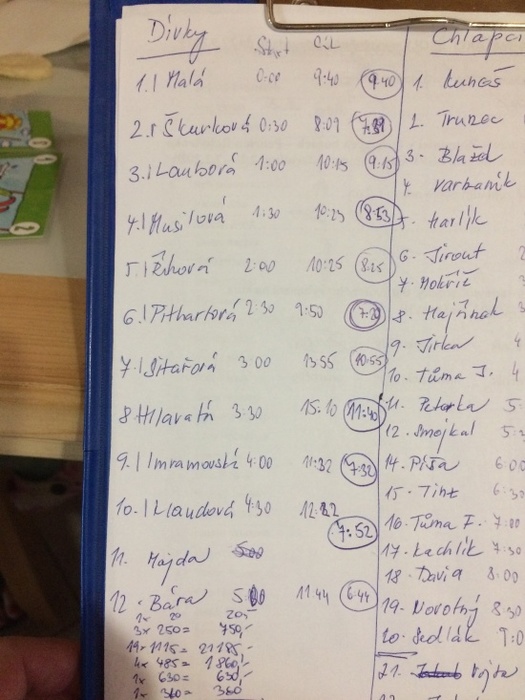 Dívky Start Cíl
1. Malá 0:00 9:40 9:40
2. Škurková 0:30 8:09 7:39
3. Laubová 1:00 10:15 9:15
4. Musilová 1:30 10:23 8:53
5. Říhová 2:00 10:25 8:25
6. Pithartová 2:30 9:50 7:20
7. Sitařová 3 00 13 55 10:55
8 Hlavatá 3:30 15:10 11:40
9. Imramovská 4:00 11:32 7:32
10. Klaudová 4:30 12:22
7:52
11. Majda 5:00
12. Bára 5:00 11 44 6:44
3x 250= 750,-
19x 1115= 21185,-
4x 485= 1860,-
1x 630= 630,-
1x 360= 360
Chlapci
1. Kuneš
2. Trunec
3. Blažd
4. Varbaník
5. Harlík
6. Jirout
7. Mokříž
8. Hajíšnek
9. Jirka 4
10. Tůma J. 4
11. Peterka 5:
12. Smejkal 5:
14. Píša 6:00
15. Tint 6:30
16. Tůma F. 7:00
17. Kachlík 7:30
18. David 8:00
19. Novotný 8 30
20. Sedlák 9:0
21. Vojta